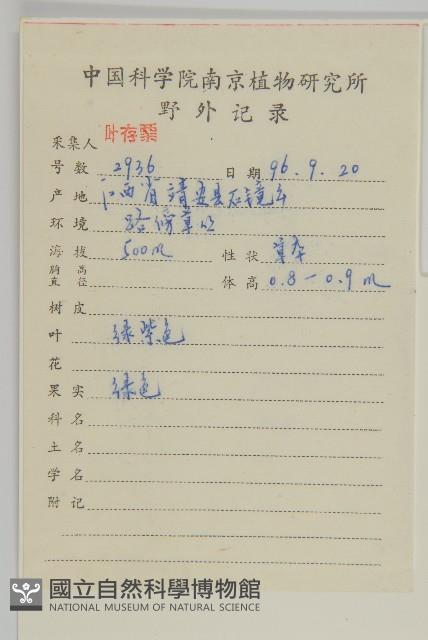 中国科学院南京植物研究所
野外记录
采集人 叶存粟
号数 2936 日期 96.9.20
产地 江西省靖安县石镜乡
环境 路傍草丛
海拔 500m 性状 草本
胸高直径 体高 0.8—0.9m
树皮
叶 绿紫色
花
果实 绿色
科名
土名
学名
附记
國立自然科學博物館
NATIONAL MUSEUM OF NATURAL SCIENCE